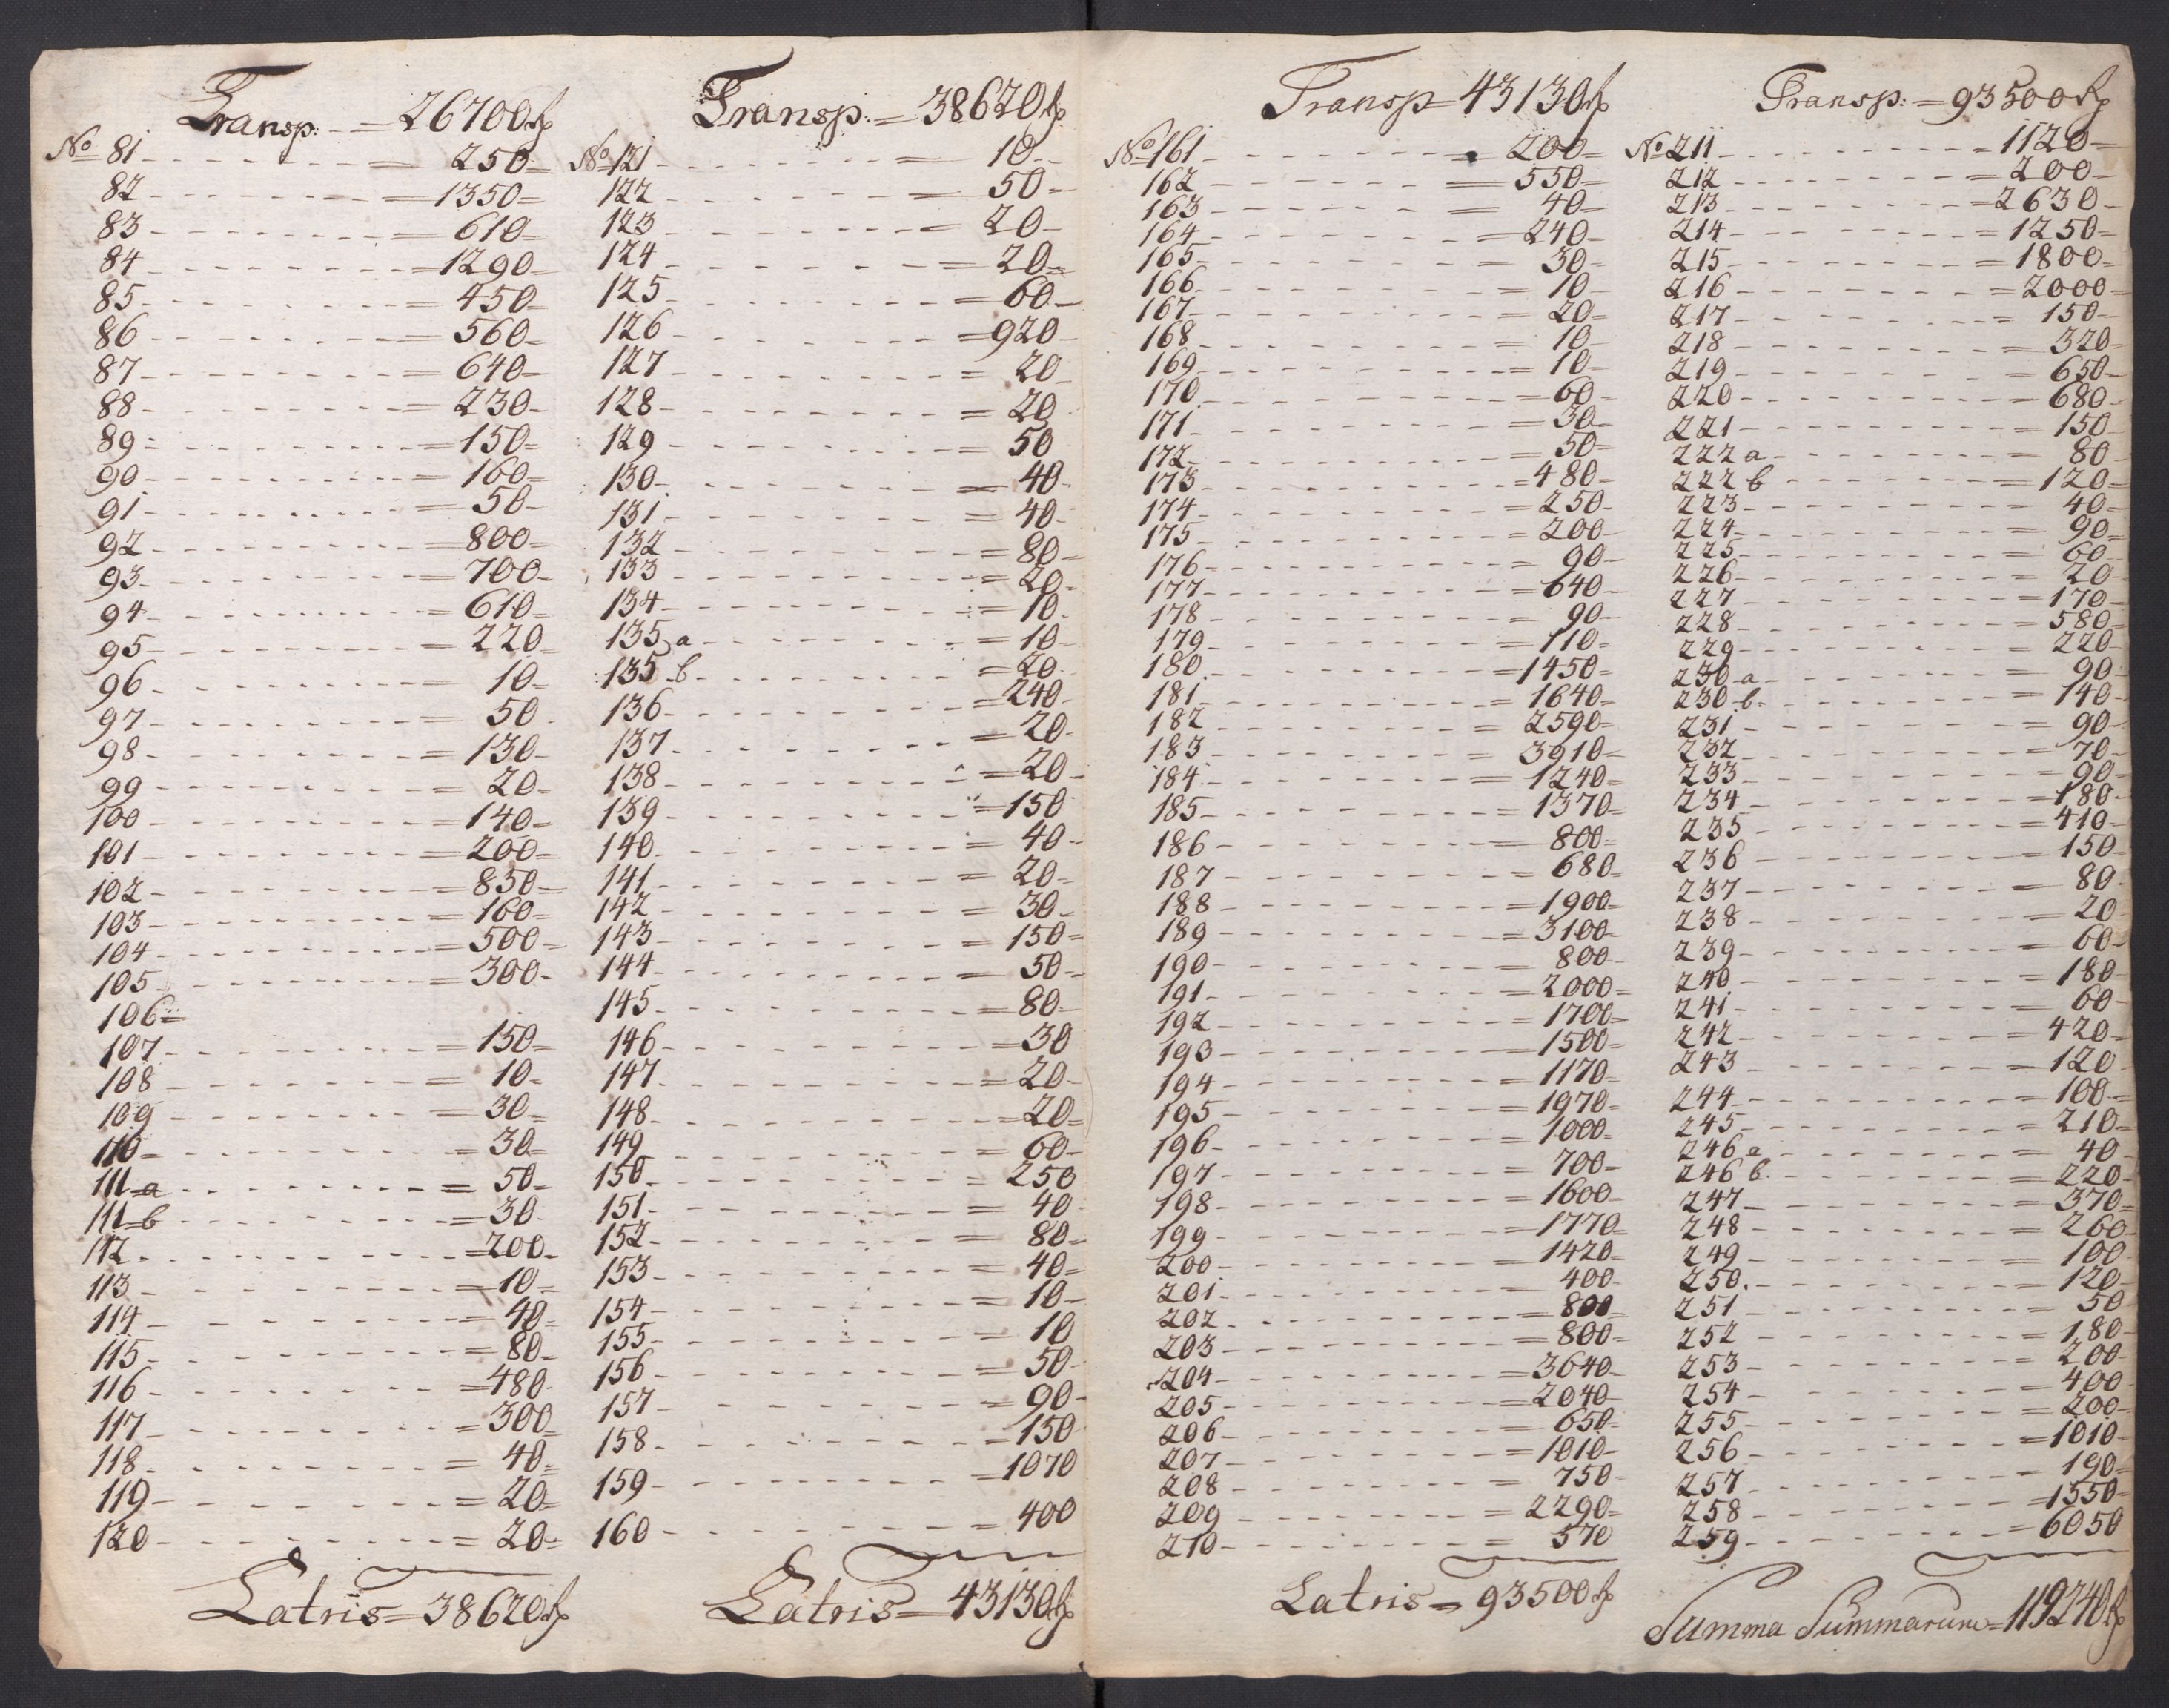 Transp: = 26700 rf
No 81 = 250
82 = 1350
83 = 610
84 = 1290
85 = 450
86 = 560
87 = 640
88 = 230
89 = 150
90 = 160
91 = 50
92 = 800
93 = 700
94 = 610
95 = 220
96 = 10
97 = 50
98 = 130
99 = 20
100 = 140
101 = 200
102 = 850
103 = 160
104 = 500
105 = 300
106 =
107 = 150
108 = 10
109 = 30
110 = 30
111 a = 50
111 b = 30
112 = 200
113 = 10
114 = 40
115 = 80
116 = 480
117 = 300
118 = 40
119 = 20
120 = 20
Latris = 38620 rf
Transp: = 38620 rf
No 121 = 10
122 = 50
123 = 20
124 = 20
125 = 60
126 = 920
127 = 20
128 = 20
129 = 50
130 = 40
131 = 40
132 = 80
133 = 20
134 = 10
135 a = 10
135 b = 20
136 = 240
137 = 20
138 = 20
139 = 150
140 = 40
141 = 20
142 = 30
143 = 150
144 = 50
145 = 80
146 = 30
147 = 20
148 = 20
149 = 60
150 = 250
151 = 40
152 = 80
153 = 40
154 = 10
155 = 10
156 = 50
157 = 90
158 = 150
159 = 1070
160 = 400
Latris = 43130 rf
Transp = 43130 rf
No 161 = 200
162 = 550
163 = 40
164 = 240
165 = 30
166 = 10
167 = 20
168 = 10
169 = 10
170 = 60
171 = 30
172 = 50
173 = 480
174 = 250
175 = 200
176 = 90
177 = 640
178 = 90
179 = 110
180 = 1450
181 = 1640
182 = 2590
183 = 3910
184 = 1240
185 = 1370
186 = 800
187 = 680
188 = 1900
189 = 3100
190 = 800
191 = 2000
192 = 1700
193 = 1500
194 = 1170
195 = 1970
196 = 1000
197 = 700
198 = 1600
199 = 1770
200 = 1420
201 = 400
202 = 800
203 = 800
204 = 3640
205 = 2040
206 = 650
207 = 1010
208 = 750
209 = 2290
210 = 570
Latris = 93500 rf
Transp: = 93500 rf
No 211 = 1120
212 = 200
213 = 2630
214 = 1250
215 = 1800
216 = 2000
217 = 150
218 = 320
219 = 650
220 = 680
221 = 150
222 a = 80
222 b = 120
223 = 40
224 = 90
225 = 60
226 = 20
227 = 170
228 = 580
229 = 220
230 a = 90
230 b = 140
231 = 90
232 = 70
233 = 90
234 = 180
235 = 410
236 = 150
237 = 80
238 = 20
239 = 60
240 = 180
241 = 60
242 = 420
243 = 120
244 = 100
245 = 210
246 a = 40
246 b = 220
247 = 370
248 = 260
249 = 100
250 = 120
251 = 50
252 = 180
253 = 200
254 = 400
255 = 200
256 = 1010
257 = 190
258 = 1550
259 = 6050
Summa Summarum = 119240 rf